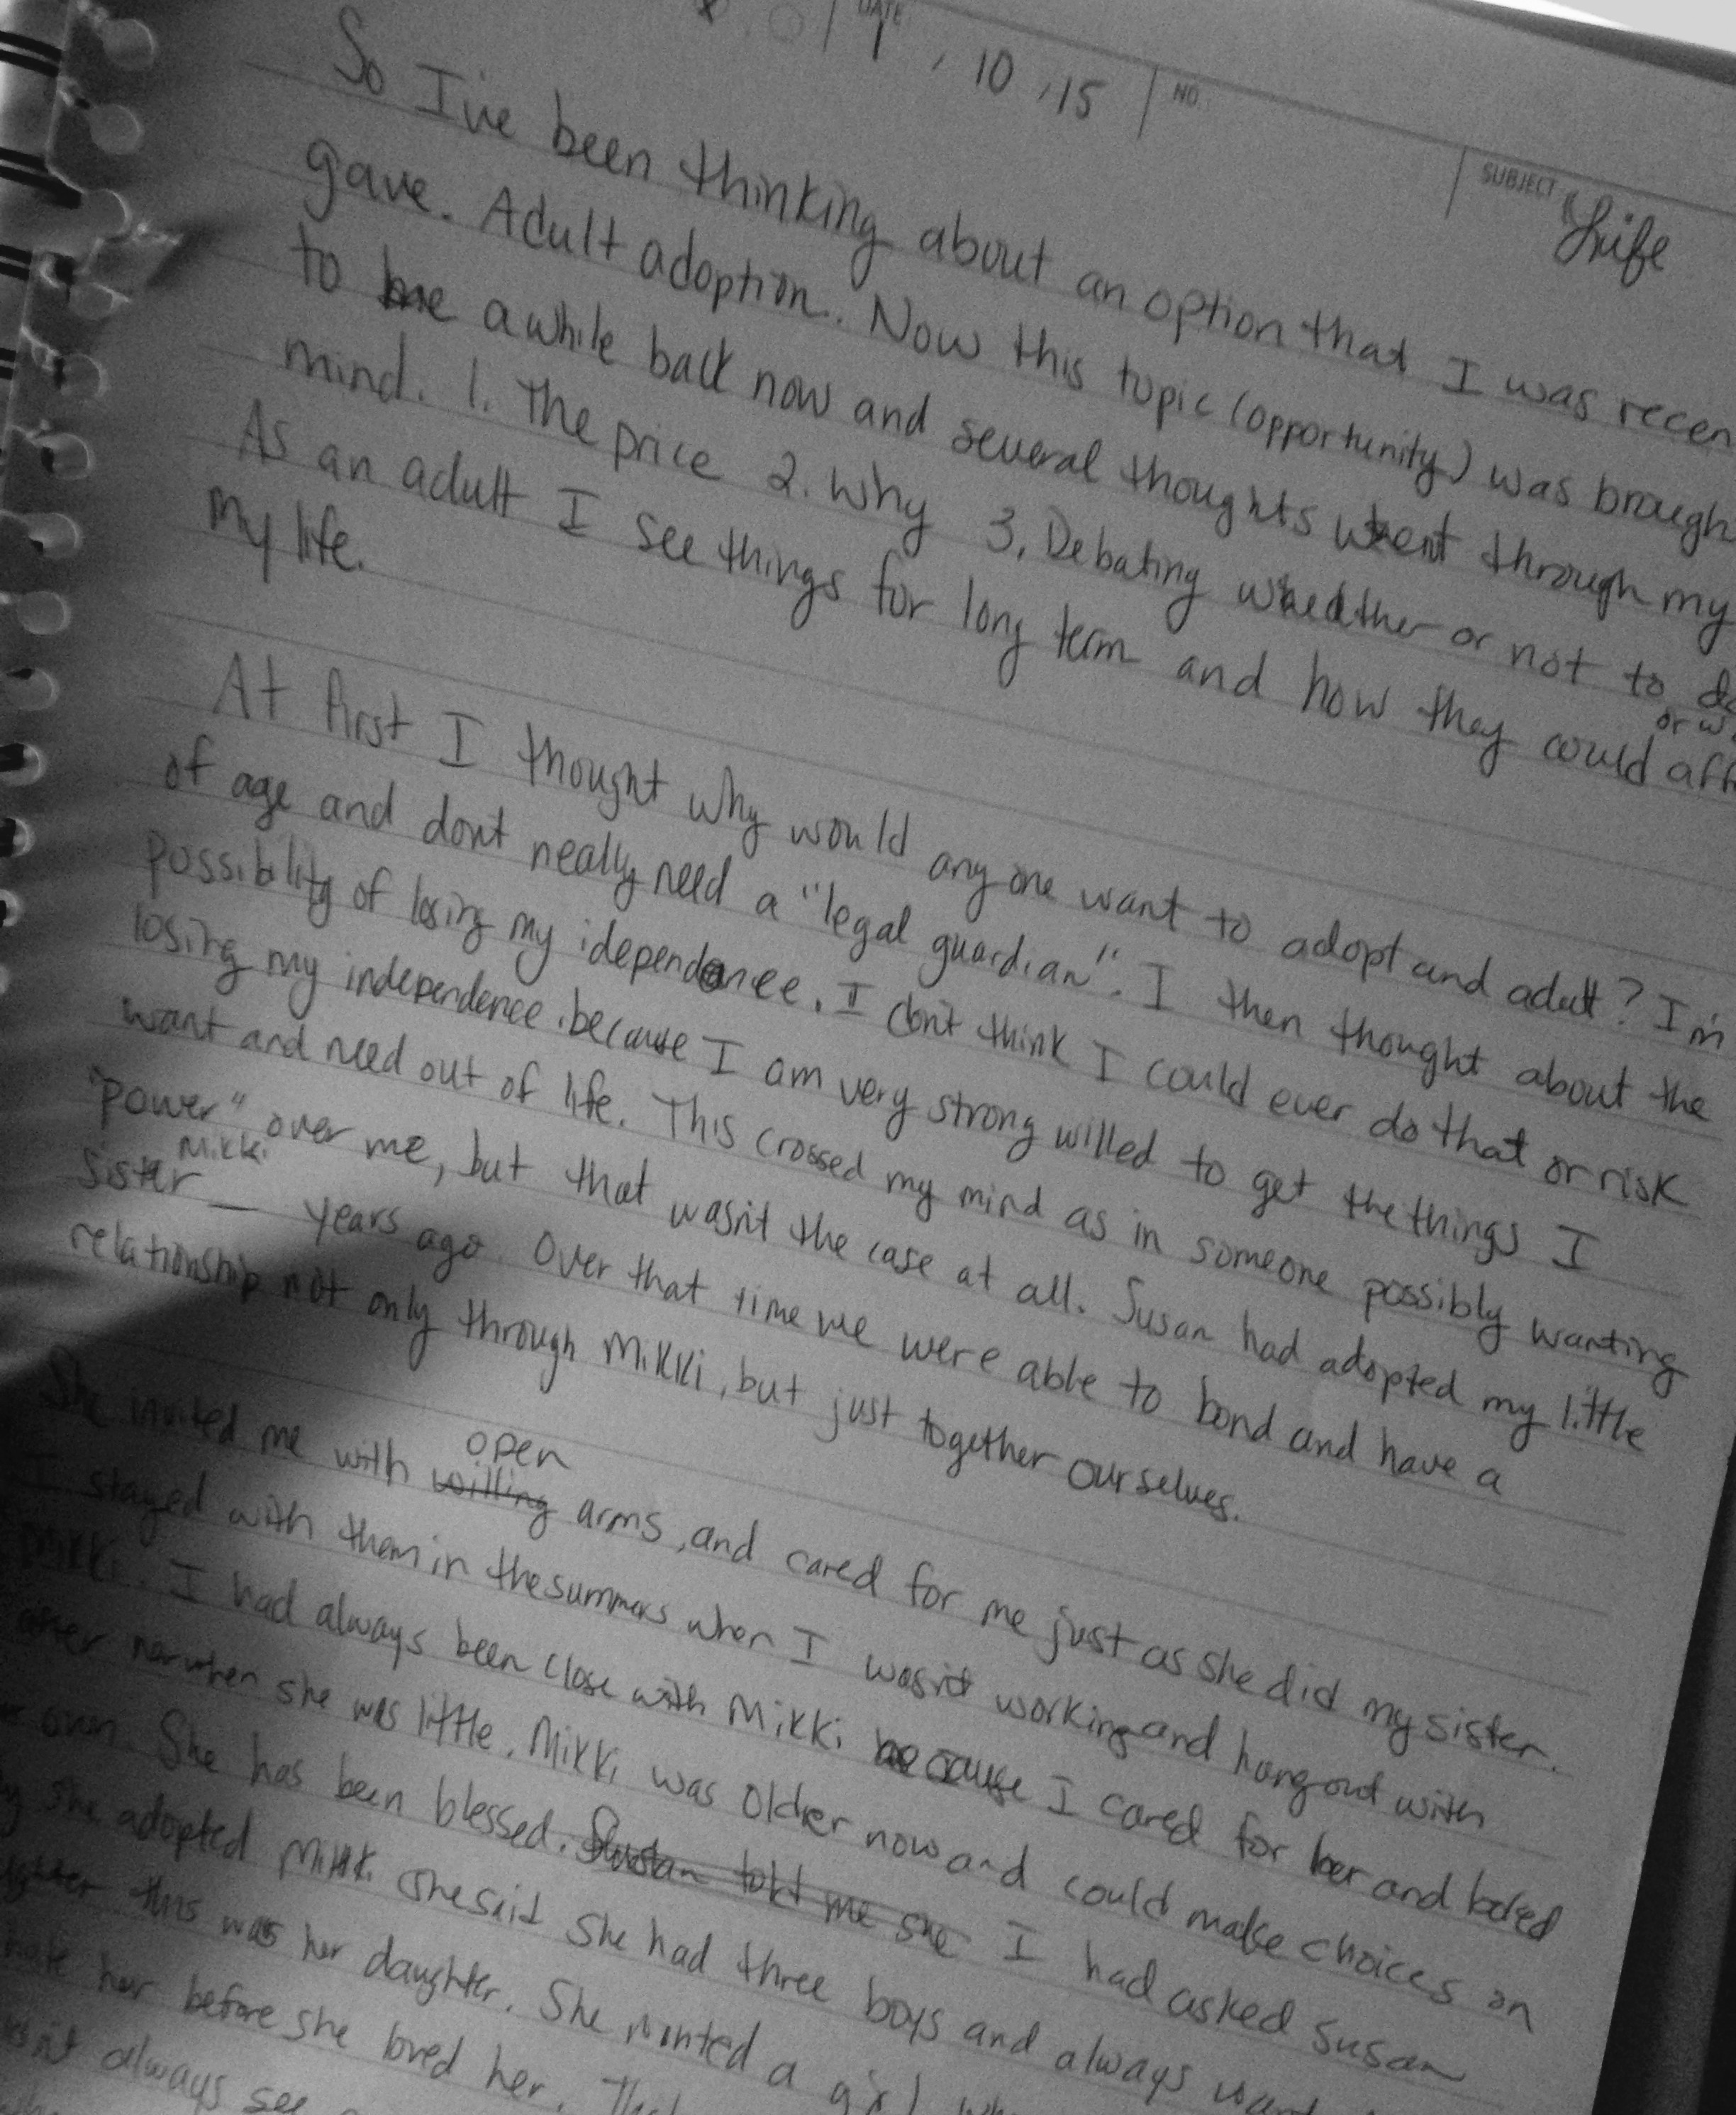 DATE
1, 10, 15
NO.
SUBJECT
Life
So I've been thinking about an option that I was recen
gave. Adult adoption. Now this topic (opportunity) was brough
to me awhile back now and several thoughts went through my
mind. 1. The price 2. Why 3. Debating whether or not to do
or w
As an adult I see things for long term and how they could aff
my life.
At first I thought why would anyone want to adopt and adult? I'm
of age and dont really need a "legal guardian". I then thought about the
possibility of losing my idependence. I don't think I could ever do that or risk
losing my independence because I am very strong willed to get the things I
want and need out of life. This crossed my mind as in someone possibly wanting
"power" over me, but that wasn't the case at all. Susan had adopted my little
sister Mikki __ years ago. Over that time we were able to bond and have a
relationship not only through Mikki, but just together ourselves.
She invited me with willing open arms, and cared for me just as she did my sister.
I stayed with them in the summers when I wasn't working and hang out with
Mikki. I had always been close with Mikki because I cared for her and
after her when she was little. Mikki was older now and could make choices on
own. She has been blessed. Susan told me she I had asked Susan
she adopted Mikki she said she had three boys and always want
this was her daughter. She wanted a girl
her before she loved her.
always see